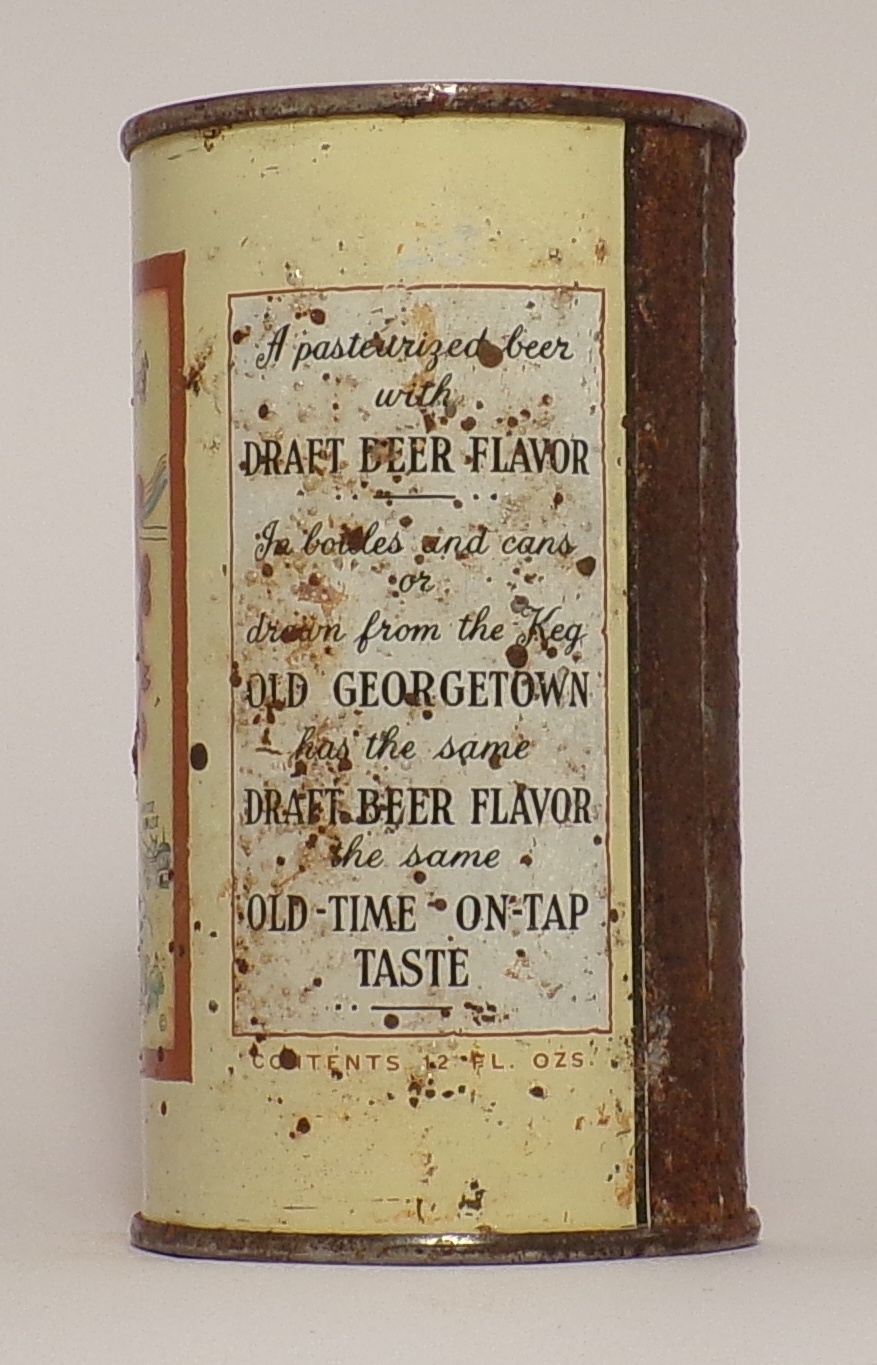 A pasteurized beer
with
DRAFT BEER FLAVOR
In bottles and cans
or
drawn from the Keg
OLD GEORGETOWN
has the same
DRAFT BEER FLAVOR
the same
OLD-TIME ON-TAP
TASTE
CONTENTS 12 FL. OZS.
©